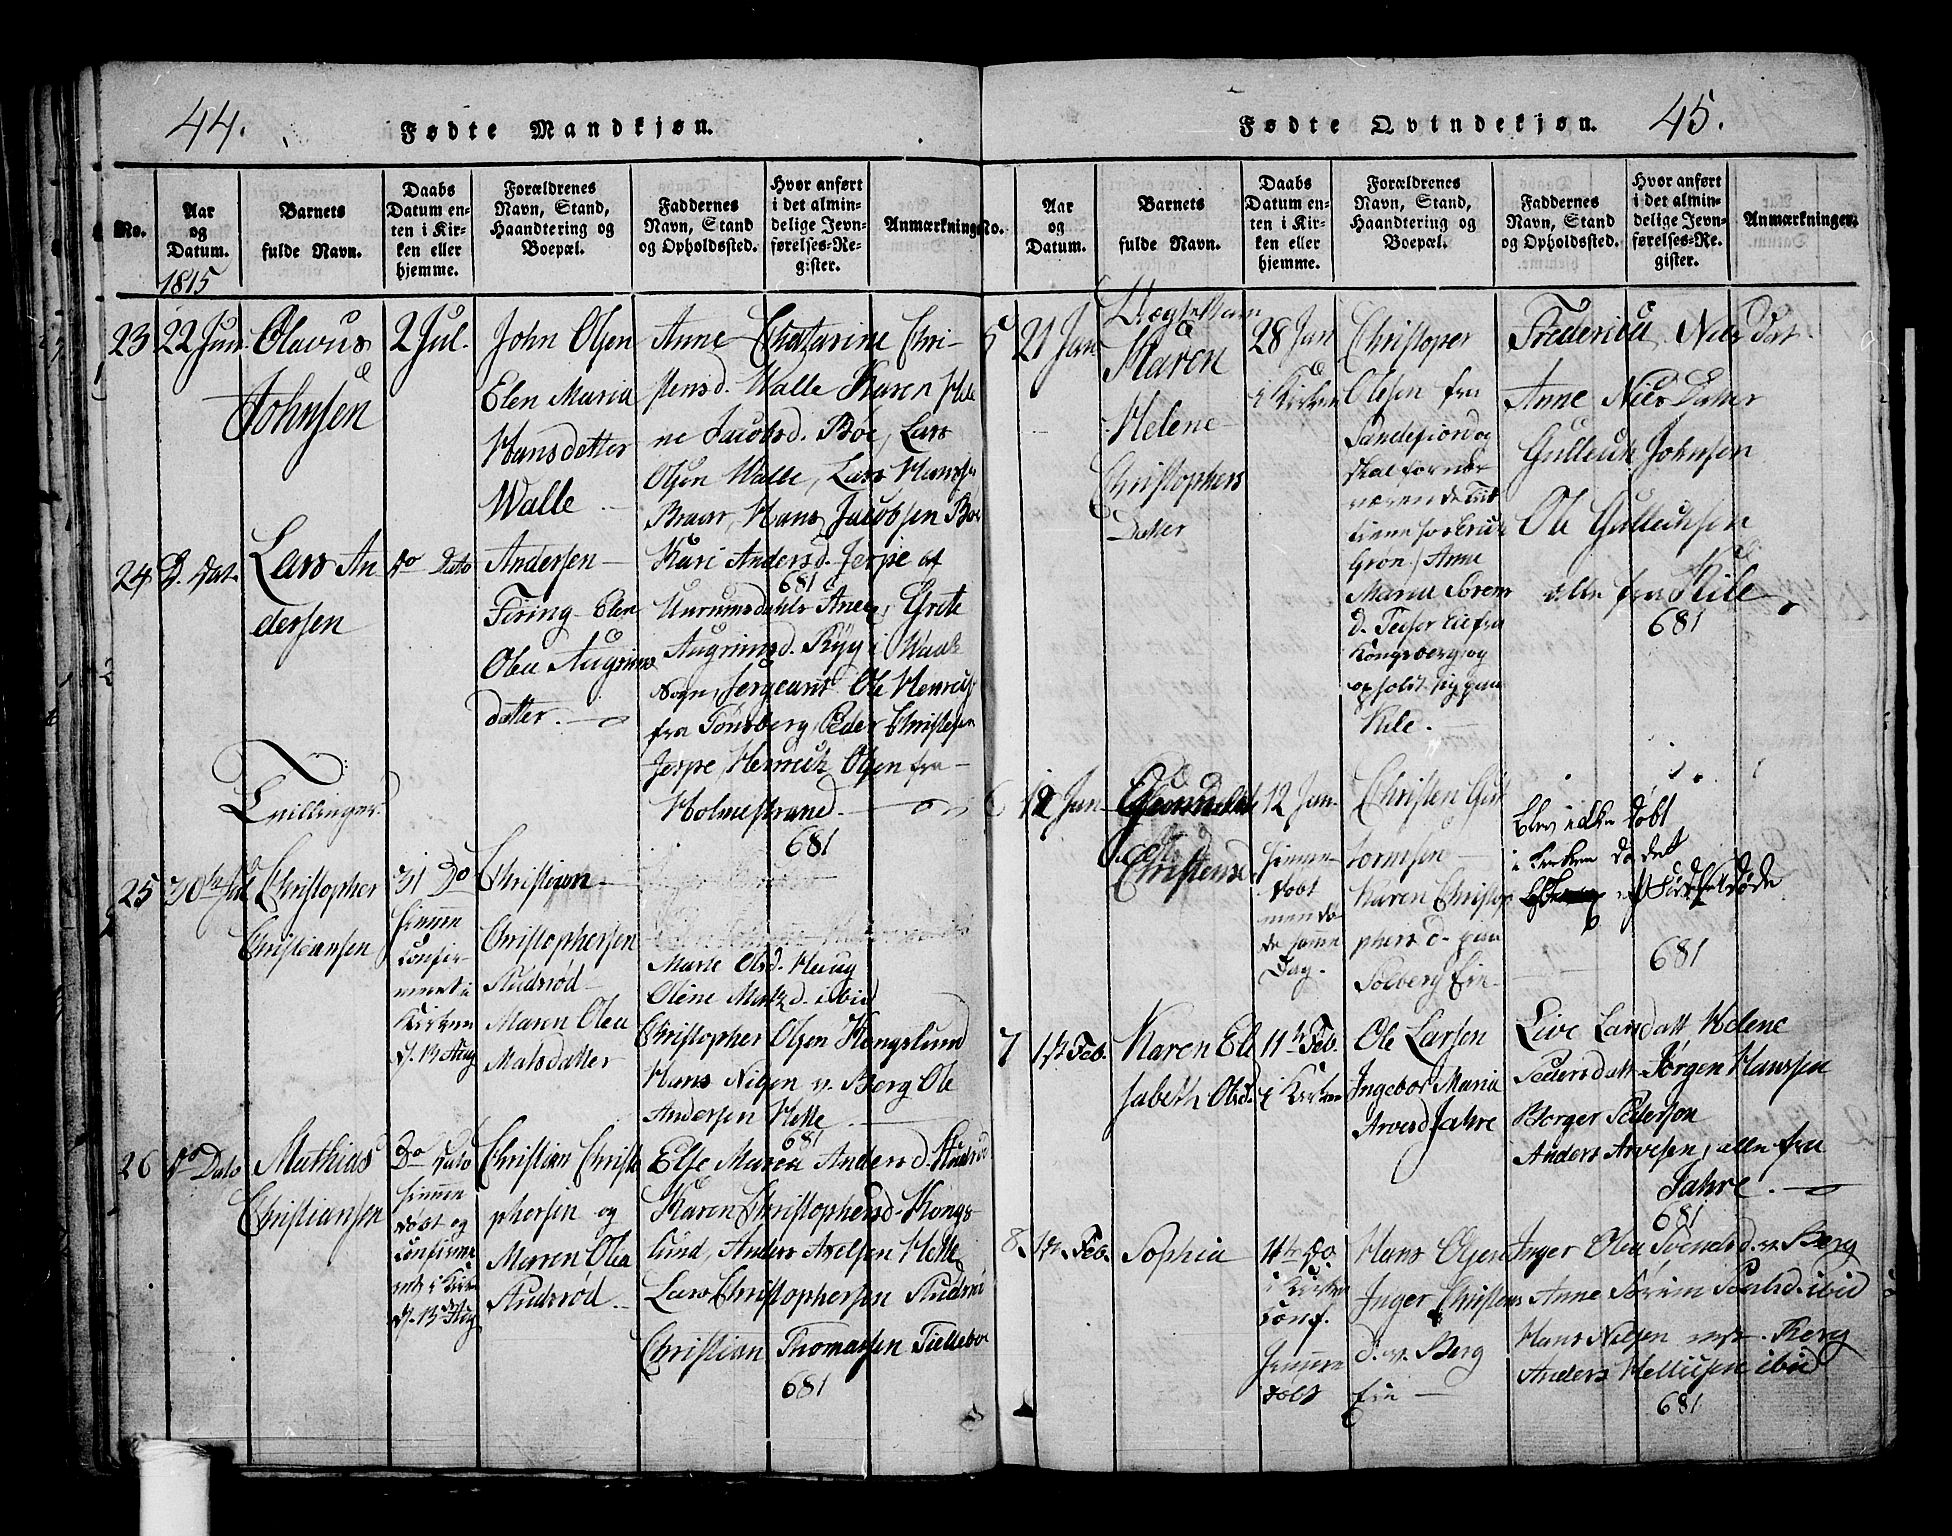 44.
Fødte Mandkjøn.
No.
Aar og Datum.
Barnets fulde Navn.
Daabs Datum enten i Kirken eller hjemme.
Forældrenes Navn, Stand, Haandtering og Boepæl.
Faddernes Navn, Stand og Opholdssted.
Hvor anført i det almindelige Jevnførelses-Register.
Anmærkninger
1815
23
22 Juni
Olavus
Johnsen
2 Jul.
John Olsen
Elen Maria
Hansdatter
Walle
Anne Chatarine Chri-
stensd. Walle Karen Hele
ne Jacobsd. Bøe, Lars
Olsen Walle, Lars Hansen
Braar, Hans Jacobsen Bøe
681
24
D. Dat.
Lars An
dersen
Do Dato
Andersen
Firing Elen
Olea Augrims
datter.
Kari Andersd. Jerpe af
Grete
Augrimsd. Ryg i Waale
Sogn, Sergeant Ole Henrichs
fra Tønsberg, Peder Christensen
Jerpe, Henrich Olsen fra
Holmestrand.
681
Tvillinger
25
30te Jul
Christopher
Christiansen
31 Do
hjemme
confir-
meret i
Kirken
d. 13 Aug
Christian
Christophersen
Rudsrød
Maren Olea
Matsdatter
Marte Olsd. Haug
Oline Matzd. ibid
Christopher Olsen Kongslund
Hans Nilsen v. Berg Ole
Andersen Hekke
681
26
Do Dato
Mathias
Christiansen
Do Dato
hjemme
døbt og
confirme
ret i Kirken
d. 13 Aug
Christian Christo
phersen og
Maren Olea
Rudsrød.
Else Maria Andersd.
Karen Christophersd. Kongs-
lund, Anders Axelsen Hekke
Lars Christophersen Rudsrød
Christian Thomassen
681
45.
Fødte Qvindekjøn.
No.
Aar og Datum.
Barnets fulde Navn.
Daabs Datum enten i Kirken eller hjemme.
Forældrenes Navn, Stand, Haandtering og Boepæl.
Faddernes Navn, Stand og Opholdssted.
Hvor anført i det almindelige Jevnførelses-Re- gister.
Anmærkninger.
5
21 Jan
Uægte Barn
Karen
Helene
Christophers
Datter
28 Jan
i Kirken
Christoper
Olesen fra
Sandefiord og
skal for nær
værende Tid
tiene
Grøn / Anne
Maria Sørens
d. fra
Kongsberg og
opholdt sig paa
Kile.
Frederica Niels Dat.
Anne Niels Datter
Gullich Johnsen
Ole Gullichsen
alle fra Kile
681
6
12 Jan
Christensd.
12 Jan.
hjemme
døbt
men dø
de samme
Dag.
Christen Gut
tormsen
Karen Christop
phersd. paa
Solberg Eie
Blev ikke døbt
i Kirken da det
ved Fødselen døde
681
7
1st. Feb.
Karen Eli
sabeth Olsd.
11te Feb.
i Kirken
Ole Larsen
Ingebor Maria
Arvesd Jahre
Live Larsdatt Helene
Pedersdatt Jørgen Hanssen
Borger Pedersøn
Anders Arvesen, alle fra
Jahre.
681
8.
1st. Feb.
Sophia
11te Do
i Kirken
conf.
hjemme
døbt
Hans Olsen
Inger Christens
d. v. Berg
Eie
Inger Olea Svendsd. v. Berg
Anne Sørine Poulsd. ibid
Hans Nilsen Berg
Anders Hellicksen ibid
681